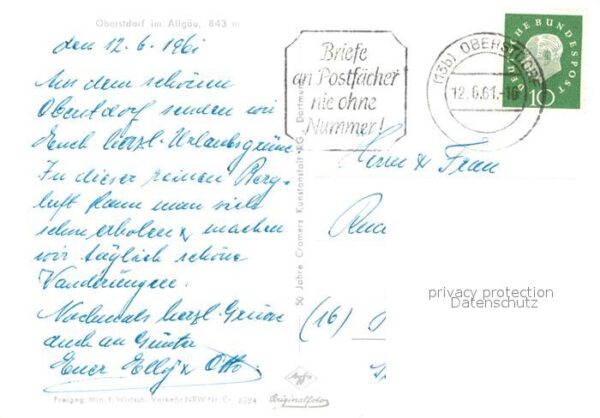 Oberstdorf im Allgäu, 843 m
den 12.6.1961
Aus dem schönen
Oberstdorf senden wir
Euch herzl. Urlaubsgrüsse
In dieser reinen Berg-
luft kann man sich
schön erholen & machen
wir täglich schöne
Wanderungen.
Nochmals herzl. Grüsse
auch an Günter
Euer Elly & Otto
Freigeg. Min. f. Wirtsch. Verkehr NRW Nr. Cr. 6294
50 Jahre Cramers Kunstanstalt KG, Dortmund
Agfa
Originalfoto
Briefe
an Postfächer
nie ohne
Nummer!
(13b) OBERSTDORF
12.6.61.-16
DEUTSCHE BUNDESPOST
10
Herrn & Frau
(16)
privacy protection
Datenschutz